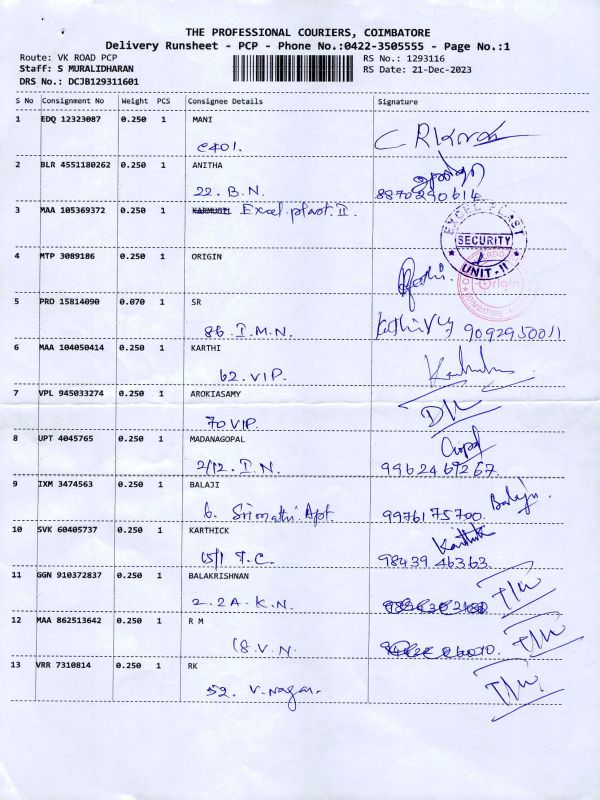 THE PROFESSIONAL COURIERS, COIMBATORE
Delivery Runsheet - PCP - Phone No.:0422-3505555 - Page No.:1
Route: VK ROAD PCP RS No.: 1293116
Staff: S MURALIDHARAN RS Date: 21-Dec-2023
DRS No.: DCJB129311601
S No Consignment No Weight PCS Consignee Details Signature
1 EDQ 12323087 0.250 1 MANI
C401.
2 BLR 4551180262 0.250 1 ANITHA
22. B.N. 8870290614
3 MAA 105369372 0.250 1 KARMUGIL Excel plast II
EXCEL PLAST
SECURITY
UNIT-II
4 MTP 3089186 0.250 1 ORIGIN
Origin
COIMBATORE
5 PRO 15814090 0.070 1 SR
86. I.M.N. 9092950011
6 MAA 104050414 0.250 1 KARTHI
62. VIP.
7 VPL 945033274 0.250 1 AROKIASAMY
70 VIP.
8 UPT 4045765 0.250 1 MADANAGOPAL
2/12. I.N. 9962469267.
9 IXM 3474563 0.250 1 BALAJI
6. Srimathi Apt. 9976175700. Balaji.
10 SVK 60405737 0.250 1 KARTHICK
Karthik
15/1 T.C. 98439 46363.
11 GGN 910372837 0.250 1 BALAKRISHNAN
2.2A. K.N.
12 MAA 862513642 0.250 1 R M
18. V.N.
13 VRR 7310814 0.250 1 RK
52. V. nagar.